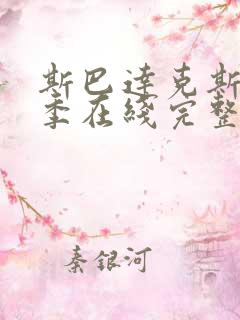 斯巴达克斯
季在线完整
秦银河